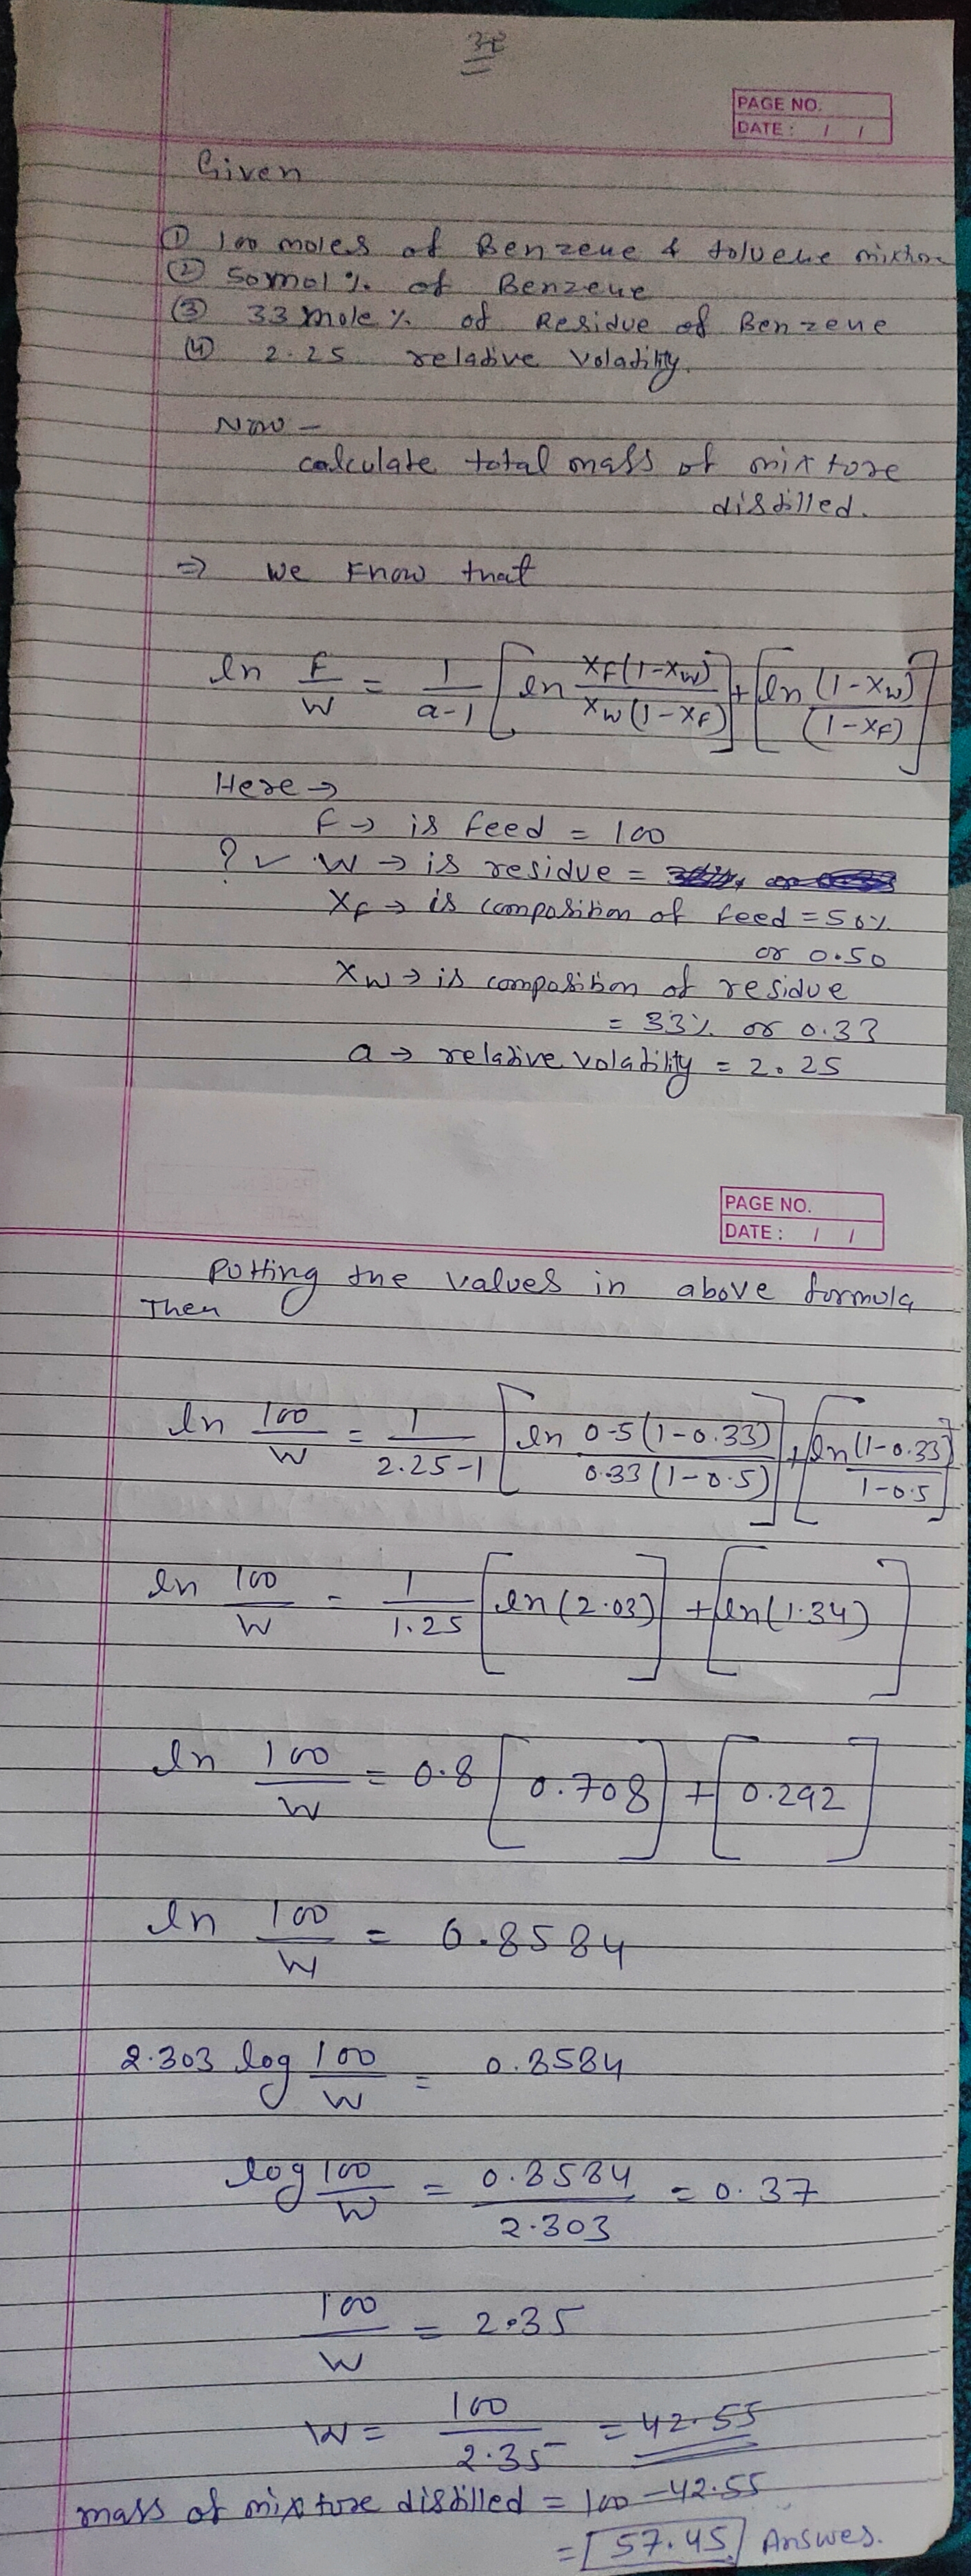 32
PAGE NO.
DATE: / /
Given
① 100 moles of Benzene & toluene mixture
② 50 mol % of Benzene
③ 33 mole % of Residue of Benzene
④ 2.25 relative Volatility.
Now -
calculate total mass of mixtore
distilled.
⇒ we know that
ln F/W = 1/(a-1) [ln XF(1-XW)/XW(1-XF)] + [ln (1-XW)/(1-XF)]
Here →
F → is feed = 100
? ✓ W → is residue =
XF → is composition of feed = 50%
or 0.50
XW → is composition of residue
= 33% or 0.33
a → relative volatility = 2.25
PAGE NO.
DATE: / /
Putting the values in above formula
Then
ln 100/W = 1/(2.25-1) [ln 0.5(1-0.33)/0.33(1-0.5)] + [ln (1-0.33)/1-0.5]
ln 100/W = 1/1.25 [ln(2.03)] + [ln(1.34)]
ln 100/W = 0.8 [0.708] + [0.292]
ln 100/W = 0.8584
2.303 log 100/W = 0.8584
log 100/W = 0.8584/2.303 = 0.37
100/W = 2.35
W = 100/2.35 = 42.55
mass of mixture distilled = 100 - 42.55
= [57.45] Answer.